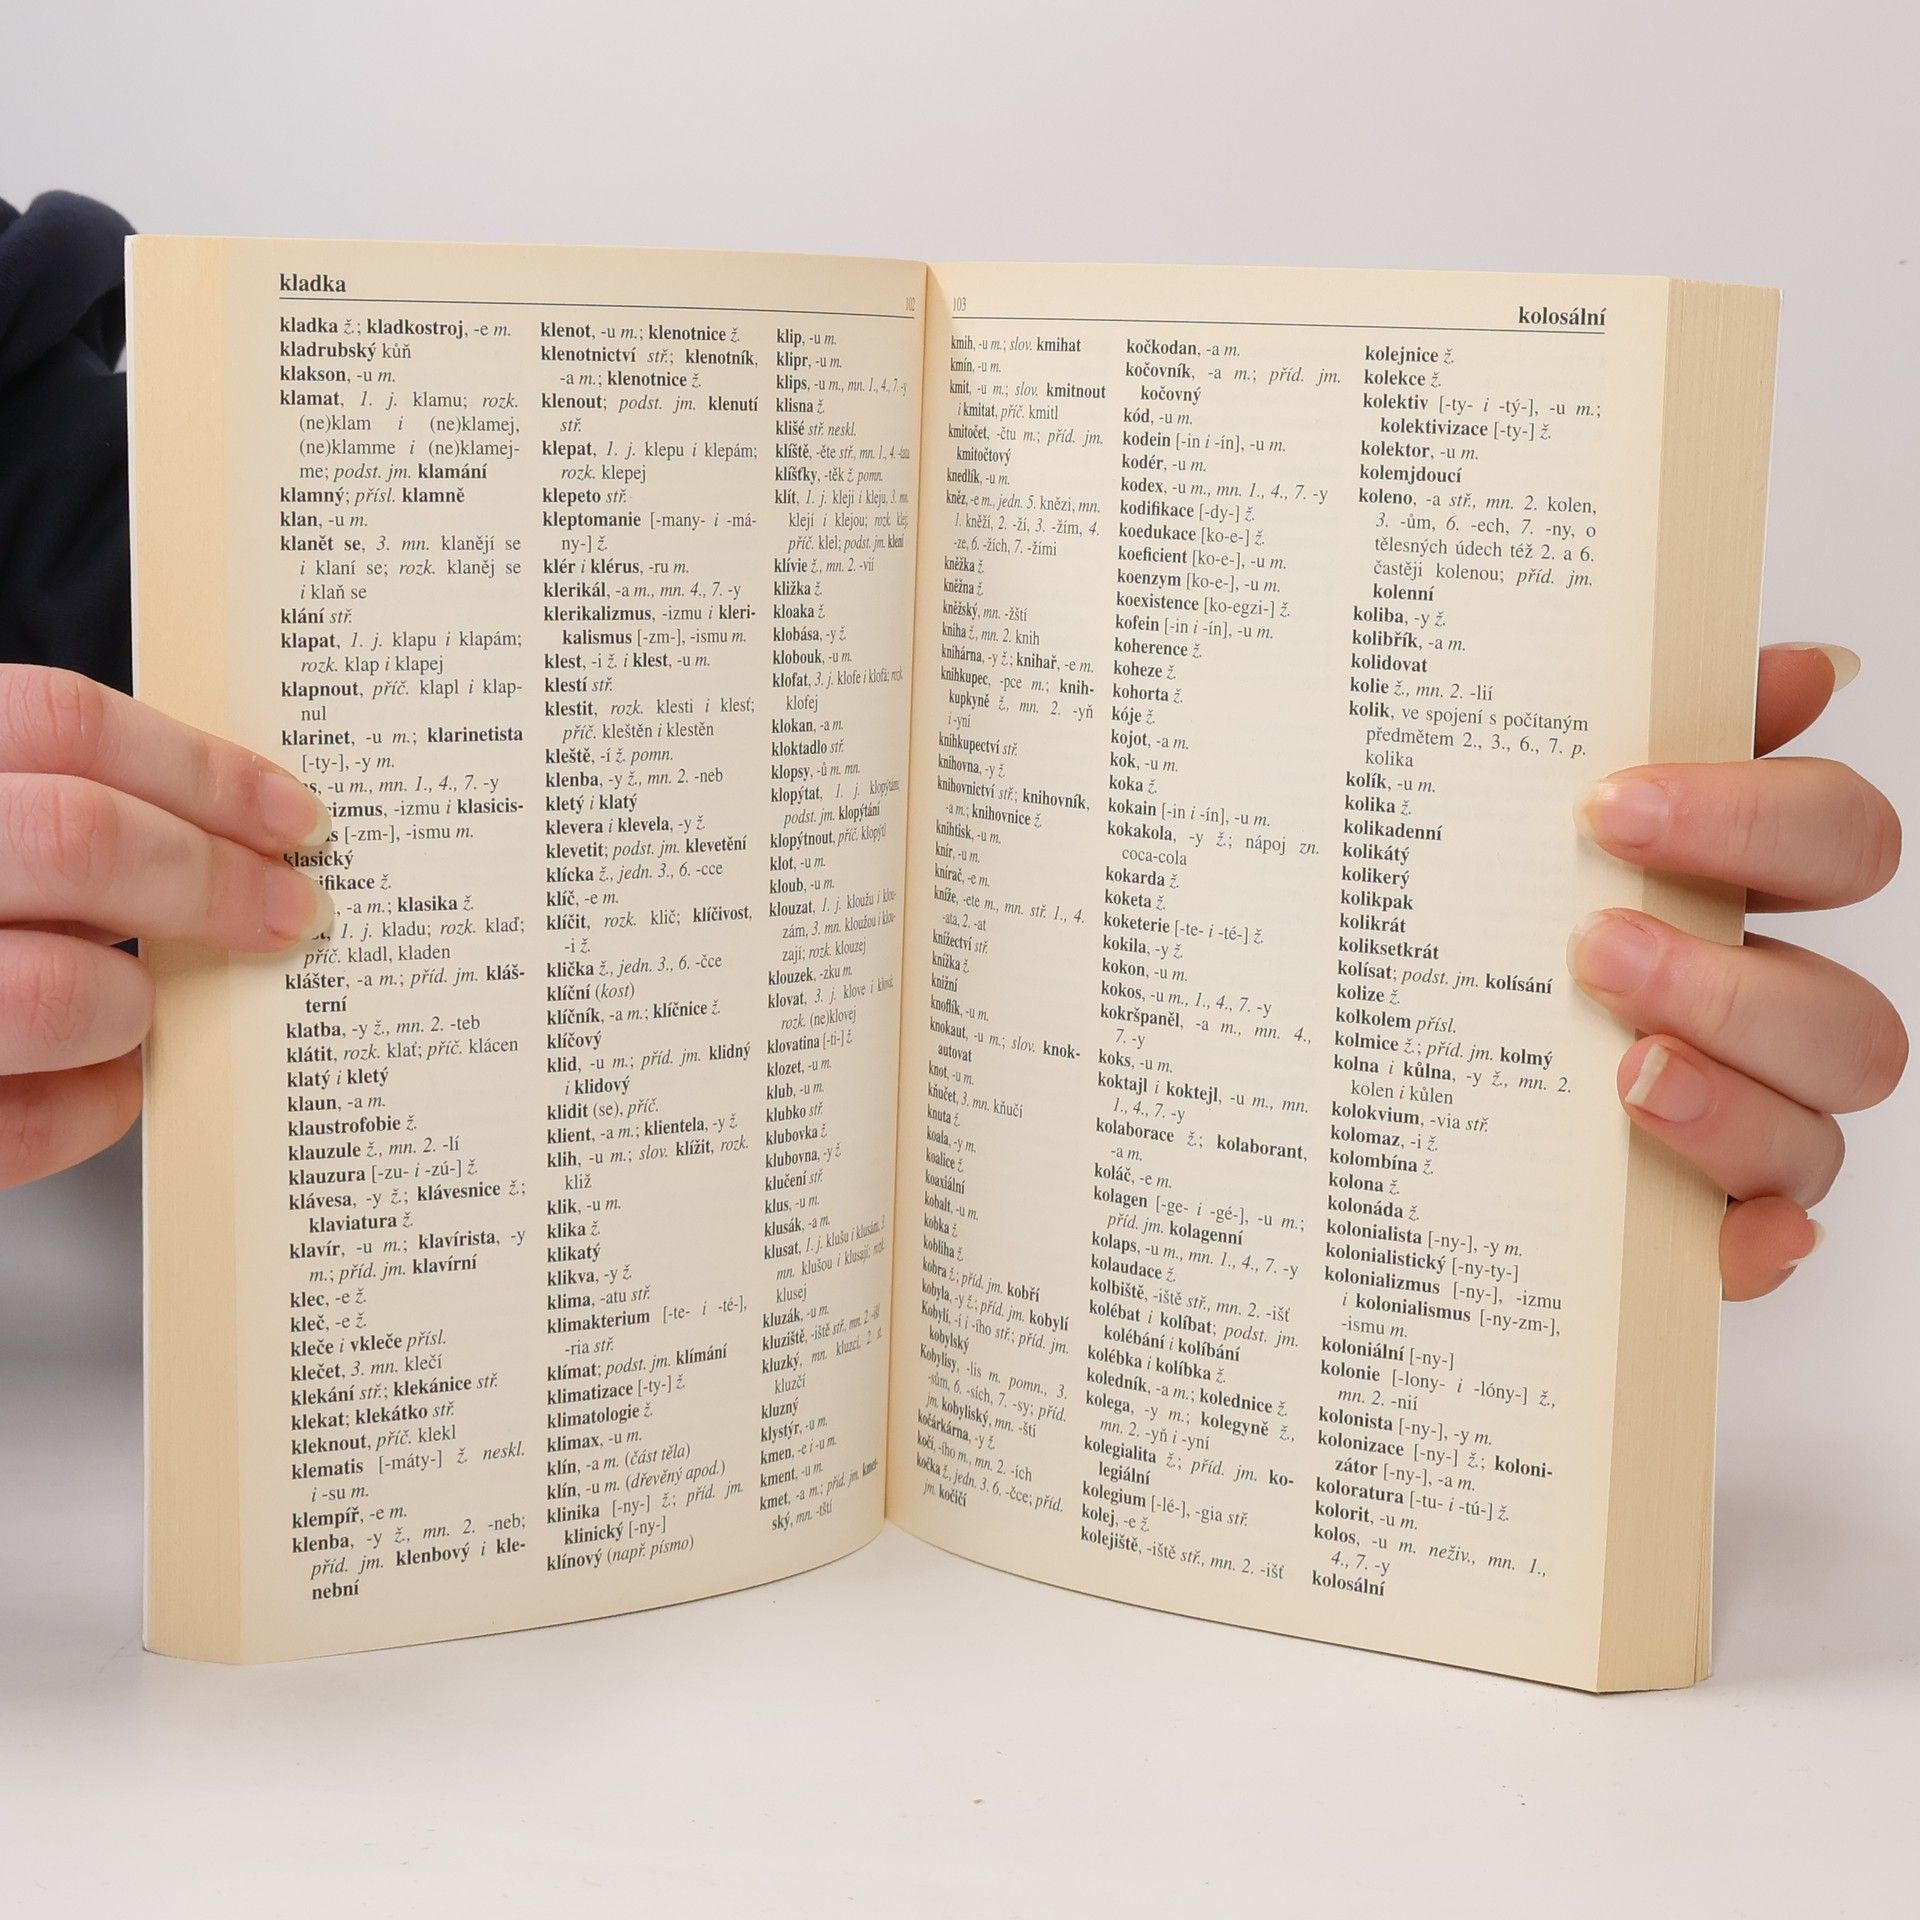 kladka
102
kladka ž.; kladkostroj, -e m.
kladrubský kůň
klakson, -u m.
klamat, 1. j. klamu; rozk.
(ne)klam i (ne)klamej,
(ne)klamme i (ne)klamej-
me; podst. jm. klamání
klamný; přísl. klamně
klan, -u m.
klanět se, 3. mn. klanějí se
i klaní se; rozk. klaněj se
i klaň se
klání stř.
klapat, 1. j. klapu i klapám;
rozk. klap i klapej
klapnout, příč. klapl i klap-
nul
klarinet, -u m.; klarinetista
[-ty-], -y m.
-u m., mn. 1., 4., 7. -y
-izmu i klasicis-
[-zm-], -ismu m.
klasický
ž.
-a m.; klasika ž.
1. j. kladu; rozk. klaď;
příč. kladl, kladen
klášter, -a m.; příd. jm. kláš-
terní
klatba, -y ž., mn. 2. -teb
klátit, rozk. klať; příč. klácen
klatý i kletý
klaun, -a m.
klaustrofobie ž.
klauzule ž., mn. 2. -lí
klauzura [-zu- i -zú-] ž.
klávesa, -y ž.; klávesnice ž.;
klaviatura ž.
klavír, -u m.; klavírista, -y
m.; příd. jm. klavírní
klec, -e ž.
kleč, -e ž.
kleče i vkleče přísl.
klečet, 3. mn. klečí
klekání stř.; klekánice stř.
klekat; klekátko stř.
kleknout, příč. klekl
klematis [-máty-] ž. neskl.
i -su m.
klempíř, -e m.
klenba, -y ž., mn. 2. -neb;
příd. jm. klenbový i kle-
nební
klenot, -u m.; klenotnice ž.
klenotnictví stř.; klenotník,
-a m.; klenotnice ž.
klenout; podst. jm. klenutí
stř.
klepat, 1. j. klepu i klepám;
rozk. klepej
klepeto stř.
kleptomanie [-many- i -má-
ny-] ž.
klér i klérus, -ru m.
klerikál, -a m., mn. 4., 7. -y
klerikalizmus, -izmu i kleri-
kalismus [-zm-], -ismu m.
klest, -i ž. i klest, -u m.
klestí stř.
klestit, rozk. klesti i klesť;
příč. kleštěn i klestěn
kleště, -í ž. pomn.
klenba, -y ž., mn. 2. -neb
kletý i klatý
klevera i klevela, -y ž.
klevetit; podst. jm. klevetění
klícka ž., jedn. 3., 6. -cce
klíč, -e m.
klíčit, rozk. klič; klíčivost,
-i ž.
klička ž., jedn. 3., 6. -čce
klíční (kost)
klíčník, -a m.; klíčnice ž.
klíčový
klid, -u m.; příd. jm. klidný
i klidový
klidit (se), příč.
klient, -a m.; klientela, -y ž.
klih, -u m.; slov. klížit, rozk.
kliž
klik, -u m.
klika ž.
klikatý
klikva, -y ž.
klima, -atu stř.
klimakterium [-te- i -té-],
-ria stř.
klímat; podst. jm. klímání
klimatizace [-ty-] ž.
klimatologie ž.
klimax, -u m.
klín, -a m. (část těla)
klín, -u m. (dřevěný apod.)
klinika [-ny-] ž.; příd. jm.
klinický [-ny-]
klínový (např. písmo)
klip, -u m.
klipr, -u m.
klips, -u m., mn. 1., 4., 7. -y
klisna ž.
klišé stř. neskl.
klíště, -ěte stř., mn. 1., 4. -ťata
klíšťky, -těk ž. pomn.
klít, 1. j. kleji i kleju, 3. mn.
klejí i klejou; rozk. klej;
příč. klel; podst. jm. klení
klívie ž., mn. 2. -vií
kližka ž.
kloaka ž.
klobása, -y ž.
klobouk, -u m.
klofat, 3. j. klofe i klofá; rozk.
klofej
klokan, -a m.
kloktadlo stř.
klopsy, -ů m. mn.
klopýtat, 1. j. klopýtám;
podst. jm. klopýtání
klopýtnout, příč. klopýtl
klot, -u m.
kloub, -u m.
klouzat, 1. j. kloužu i klou-
zám, 3. mn. kloužou i klou-
zají; rozk. klouzej
klouzek, -zku m.
klovat, 3. j. klove i klová;
rozk. (ne)klovej
klovatina [-ti-] ž.
klozet, -u m.
klub, -u m.
klubko stř.
klubovka ž.
klubovna, -y ž.
klučení stř.
klus, -u m.
klusák, -a m.
klusat, 1. j. klušu i klusám, 3.
mn. klušou i klusají; rozk.
klusej
kluzák, -u m.
kluziště, -iště stř., mn. 2. -išť
kluzký, mn. kluzcí, 2. st.
kluzčí
kluzný
klystýr, -u m.
kmen, -e i -u m.
kment, -u m.
kmet, -a m.; příd. jm. kmet-
ský, mn. -tští
103
kolosální
kmih, -u m.; slov. kmihat
kmín, -u m.
kmit, -u m.; slov. kmitnout
i kmitat, příč. kmitl
kmitočet, -čtu m.; příd. jm.
kmitočtový
knedlík, -u m.
kněz, -e m., jedn. 5. knězi, mn.
1. kněží, 2. -ží, 3. -žím, 4.
-ze, 6. -žích, 7. -žími
kněžka ž.
kněžna ž.
kněžský, mn. -žští
kniha ž., mn. 2. knih
knihárna, -y ž.; knihař, -e m.
knihkupec, -pce m.; knih-
kupkyně ž., mn. 2. -yň
i -yní
knihkupectví stř.
knihovna, -y ž.
knihovnictví stř.; knihovník,
-a m.; knihovnice ž.
knihtisk, -u m.
knír, -u m.
knírač, -e m.
kníže, -ete m., mn. stř. 1., 4.
-ata, 2. -at
knížectví stř.
knížka ž.
knižní
knoflík, -u m.
knokaut, -u m.; slov. knok-
autovat
knot, -u m.
kňučet, 3. mn. kňučí
knuta ž.
koala, -y m.
koalice ž.
koaxiální
kobalt, -u m.
kobka ž.
kobliha ž.
kobra ž.; příd. jm. kobří
kobyla, -y ž.; příd. jm. kobylí
Kobylí, -í i -ího stř.; příd. jm.
kobylský
Kobylisy, -lis m. pomn., 3.
-sům, 6. -sích, 7. -sy; příd.
jm. kobyliský, mn. -ští
kočárkárna, -y ž.
kočí, -ího m., mn. 2. -ích
kočka ž., jedn. 3. 6. -čce; příd.
jm. kočičí
kočkodan, -a m.
kočovník, -a m.; příd. jm.
kočovný
kód, -u m.
kodein [-in i -ín], -u m.
kodér, -u m.
kodex, -u m., mn. 1., 4., 7. -y
kodifikace [-dy-] ž.
koedukace [ko-e-] ž.
koeficient [ko-e-], -u m.
koenzym [ko-e-], -u m.
koexistence [ko-egzi-] ž.
kofein [-in i -ín], -u m.
koherence ž.
koheze ž.
kohorta ž.
kóje ž.
kojot, -a m.
kok, -u m.
koka ž.
kokain [-in i -ín], -u m.
kokakola, -y ž.; nápoj zn.
coca-cola
kokarda ž.
koketa ž.
koketerie [-te- i -té-] ž.
kokila, -y ž.
kokon, -u m.
kokos, -u m., 1., 4., 7. -y
kokršpaněl, -a m., mn. 4.,
7. -y
koks, -u m.
koktajl i koktejl, -u m., mn.
1., 4., 7. -y
kolaborace ž.; kolaborant,
-a m.
koláč, -e m.
kolagen [-ge- i -gé-], -u m.;
příd. jm. kolagenní
kolaps, -u m., mn. 1., 4., 7. -y
kolaudace ž.
kolbiště, -iště stř., mn. 2. -išť
kolébat i kolíbat; podst. jm.
kolébání i kolíbání
kolébka i kolíbka ž.
koledník, -a m.; kolednice ž.
kolega, -y m.; kolegyně ž.,
mn. 2. -yň i -yní
kolegialita ž.; příd. jm. ko-
legiální
kolegium [-lé-], -gia stř.
kolej, -e ž.
kolejiště, -iště stř., mn. 2. -išť
kolejnice ž.
kolekce ž.
kolektiv [-ty- i -tý-], -u m.;
kolektivizace [-ty-] ž.
kolektor, -u m.
kolemjdoucí
koleno, -a stř., mn. 2. kolen,
3. -ům, 6. -ech, 7. -ny, o
tělesných údech též 2. a 6.
častěji kolenou; příd. jm.
kolenní
koliba, -y ž.
kolibřík, -a m.
kolidovat
kolie ž., mn. 2. -lií
kolik, ve spojení s počítaným
předmětem 2., 3., 6., 7. p.
kolika
kolík, -u m.
kolika ž.
kolikadenní
kolikátý
kolikerý
kolikpak
kolikrát
koliksetkrát
kolísat; podst. jm. kolísání
kolize ž.
kolkolem přísl.
kolmice ž.; příd. jm. kolmý
kolna i kůlna, -y ž., mn. 2.
kolen i kůlen
kolokvium, -via stř.
kolomaz, -i ž.
kolombína ž.
kolona ž.
kolonáda ž.
kolonialista [-ny-], -y m.
kolonialistický [-ny-ty-]
kolonializmus [-ny-], -izmu
i kolonialismus [-ny-zm-],
-ismu m.
koloniální [-ny-]
kolonie [-lony- i -lóny-] ž.,
mn. 2. -nií
kolonista [-ny-], -y m.
kolonizace [-ny-] ž.; koloni-
zátor [-ny-], -a m.
koloratura [-tu- i -tú-] ž.
kolorit, -u m.
kolos, -u m. neživ., mn. 1.,
4., 7. -y
kolosální